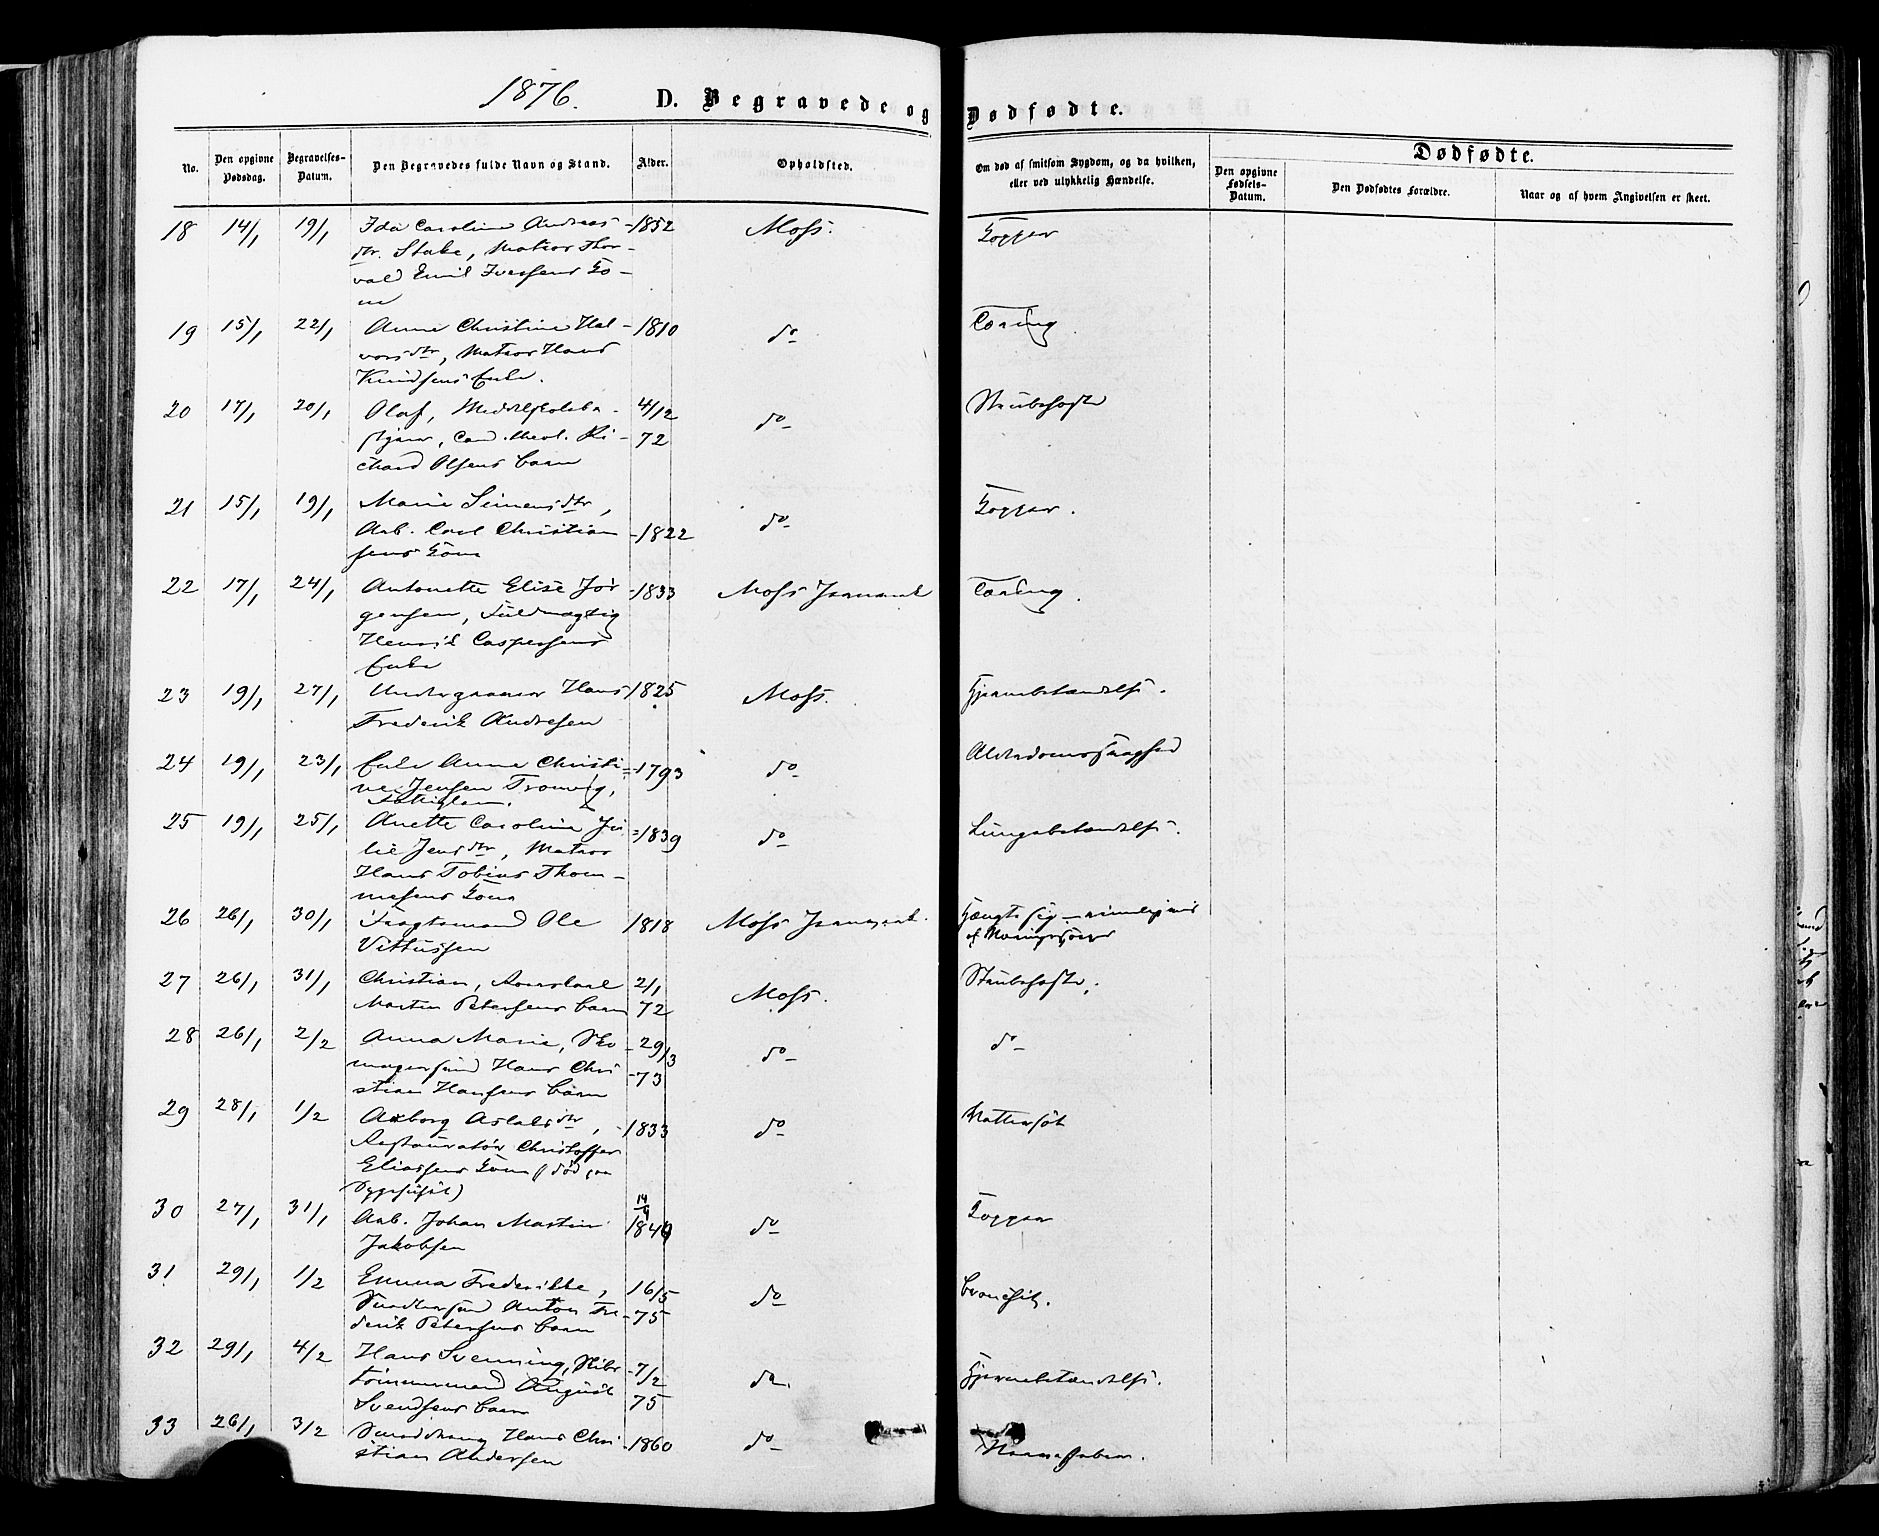 1876.
D. Begravede og Dødfødte.
No.
Den opgivne Dødsdag.
Begravelses-Datum.
Den Begravedes fulde Navn og Stand.
Alder.
Opholdsted.
Om død af smitsom Sygdom, og da hvilken, eller ved ulykkelig Hændelse.
Dødfødte.
Den opgivne Fødsels-Datum.
Den Dødfødtes Forældre.
Naar og af hvem Angivelsen er skeet.
18 14/1 19/1 Ida Caroline Andreas- 1852 Moss. Kopper
dtr. Stake, Matros Thor-
vald Emil Iversens Ko-
ne
19 15/1 22/1 Anne Christine Hal- 1810 do Tæring
vorsdtr, Matros Hans
Knudsens Enke.
20 17/1 20/1 Olaf, Middelskolebe- 4/12 do Strubehoste
styrer, Cand. theol. Ri- 72
chard Olsens Barn
21 15/1 19/1 Marie Simensdtr, do Kopper.
Arb. Carl Christian- 1822
sens Kone
22 17/1 24/1 Antonette Elise Jør- 1833 Moss Tæring.
gensen, Fuldmægtig
Henrik Caspersens
Enke
23 19/1 27/1 Hans 1825 Moss. Hjernebetændelse.
Frederik Andresen
24 19/1 23/1 Enke Anne Christi- 1793 do Alderdomssvaghed
ne Jensen Tronvig,
Fattiglem.
25 19/1 25/1 Anette Caroline Ju- 1839 do Lungebetændelse.
lie Jensdtr, Matros
Hans Tobias Thom-
mesens Kone
26 26/1 30/1 Fragtemand Ole 1818 Moss Hængte sig - rimeligvis
Vittussen af Næringssorger
27 26/1 31/1 Christian, 2/1 Moss. Strubehoste.
Martin Petersens Barn 72
28 26/1 2/2 Anna Marie, Sko- 29/3 do do
magersvend Hans Chri- 73
stian Hansens Barn
29 28/1 1/2 Aaborg Aslaksdtr, 1833 do Kattersot
Restauratør Christoffer
Eliassens Kone (død paa
Sygehuset)
30 27/1 31/1 Arb. Johan Martin 14/9 1849 do Kopper
Jakobsen
31 29/1 1/2 Emma Frederikke, 16/5 do Bronchit.
Snedkersvend Anton Fre- 75
derik Petersens Barn
32 29/1 4/2 Hans Svenning, Skibs- 7/2 do Hjernebetændelse.
tømmermand August 75
Svendsens Barn
33 26/1 3/2 Smeddreng Hans Chri- 1860 do Nervefeber.
stian Andersen